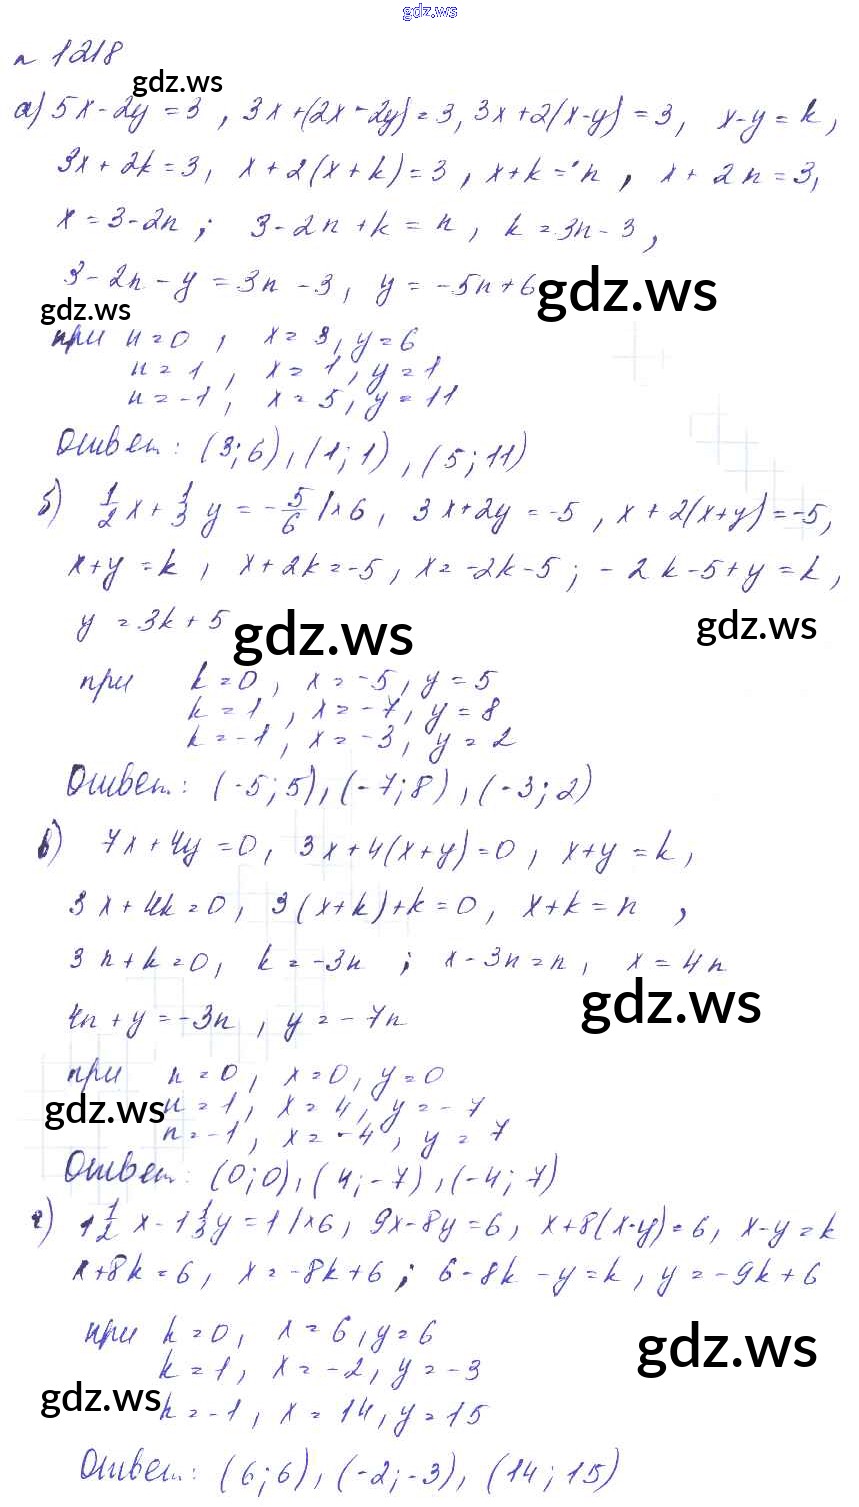 gdz.ws
n 1218
gdz.ws
а) 5x-2y=3, 3x+(2x-2y)=3, 3x+2(x-y)=3, x-y=k,
3x+2k=3, x+2(x+k)=3, x+k=n, x+2n=3,
x=3-2n; 3-2n+k=n, k=3n-3,
3-2n-y=3n-3, y=-5n+6
gdz.ws
gdz.ws
при n=0, x=3, y=6
n=1, x=1, y=1
n=-1, x=5, y=11
Ответ: (3;6), (1;1), (5;11)
б) 1/2 x+1/3 y=-5/6 |×6, 3x+2y=-5, x+2(x+y)=-5,
x+y=k, x+2k=-5, x=-2k-5; -2k-5+y=k,
y=3k+5
gdz.ws
gdz.ws
при k=0, x=-5, y=5
k=1, x=-7, y=8
k=-1, x=-3, y=2
Ответ: (-5;5), (-7;8), (-3;2)
в) 7x+4y=0, 3x+4(x+y)=0, x+y=k,
3x+4k=0, 3(x+k)+k=0, x+k=n,
3n+k=0, k=-3n; x-3n=n, x=4n
gdz.ws
4n+y=-3n, y=-7n
при n=0, x=0, y=0
gdz.ws
n=1, x=4, y=-7
n=-1, x=-4, y=7
Ответ: (0;0), (4;-7), (-4;7)
г) 1 1/2 x-1 1/3 y=1 |×6, 9x-8y=6, x+8(x-y)=6, x-y=k
x+8k=6, x=-8k+6; 6-8k-y=k, y=-9k+6
при k=0, x=6, y=6
gdz.ws
k=1, x=-2, y=-3
gdz.ws
k=-1, x=14, y=15
Ответ: (6;6), (-2;-3), (14;15)